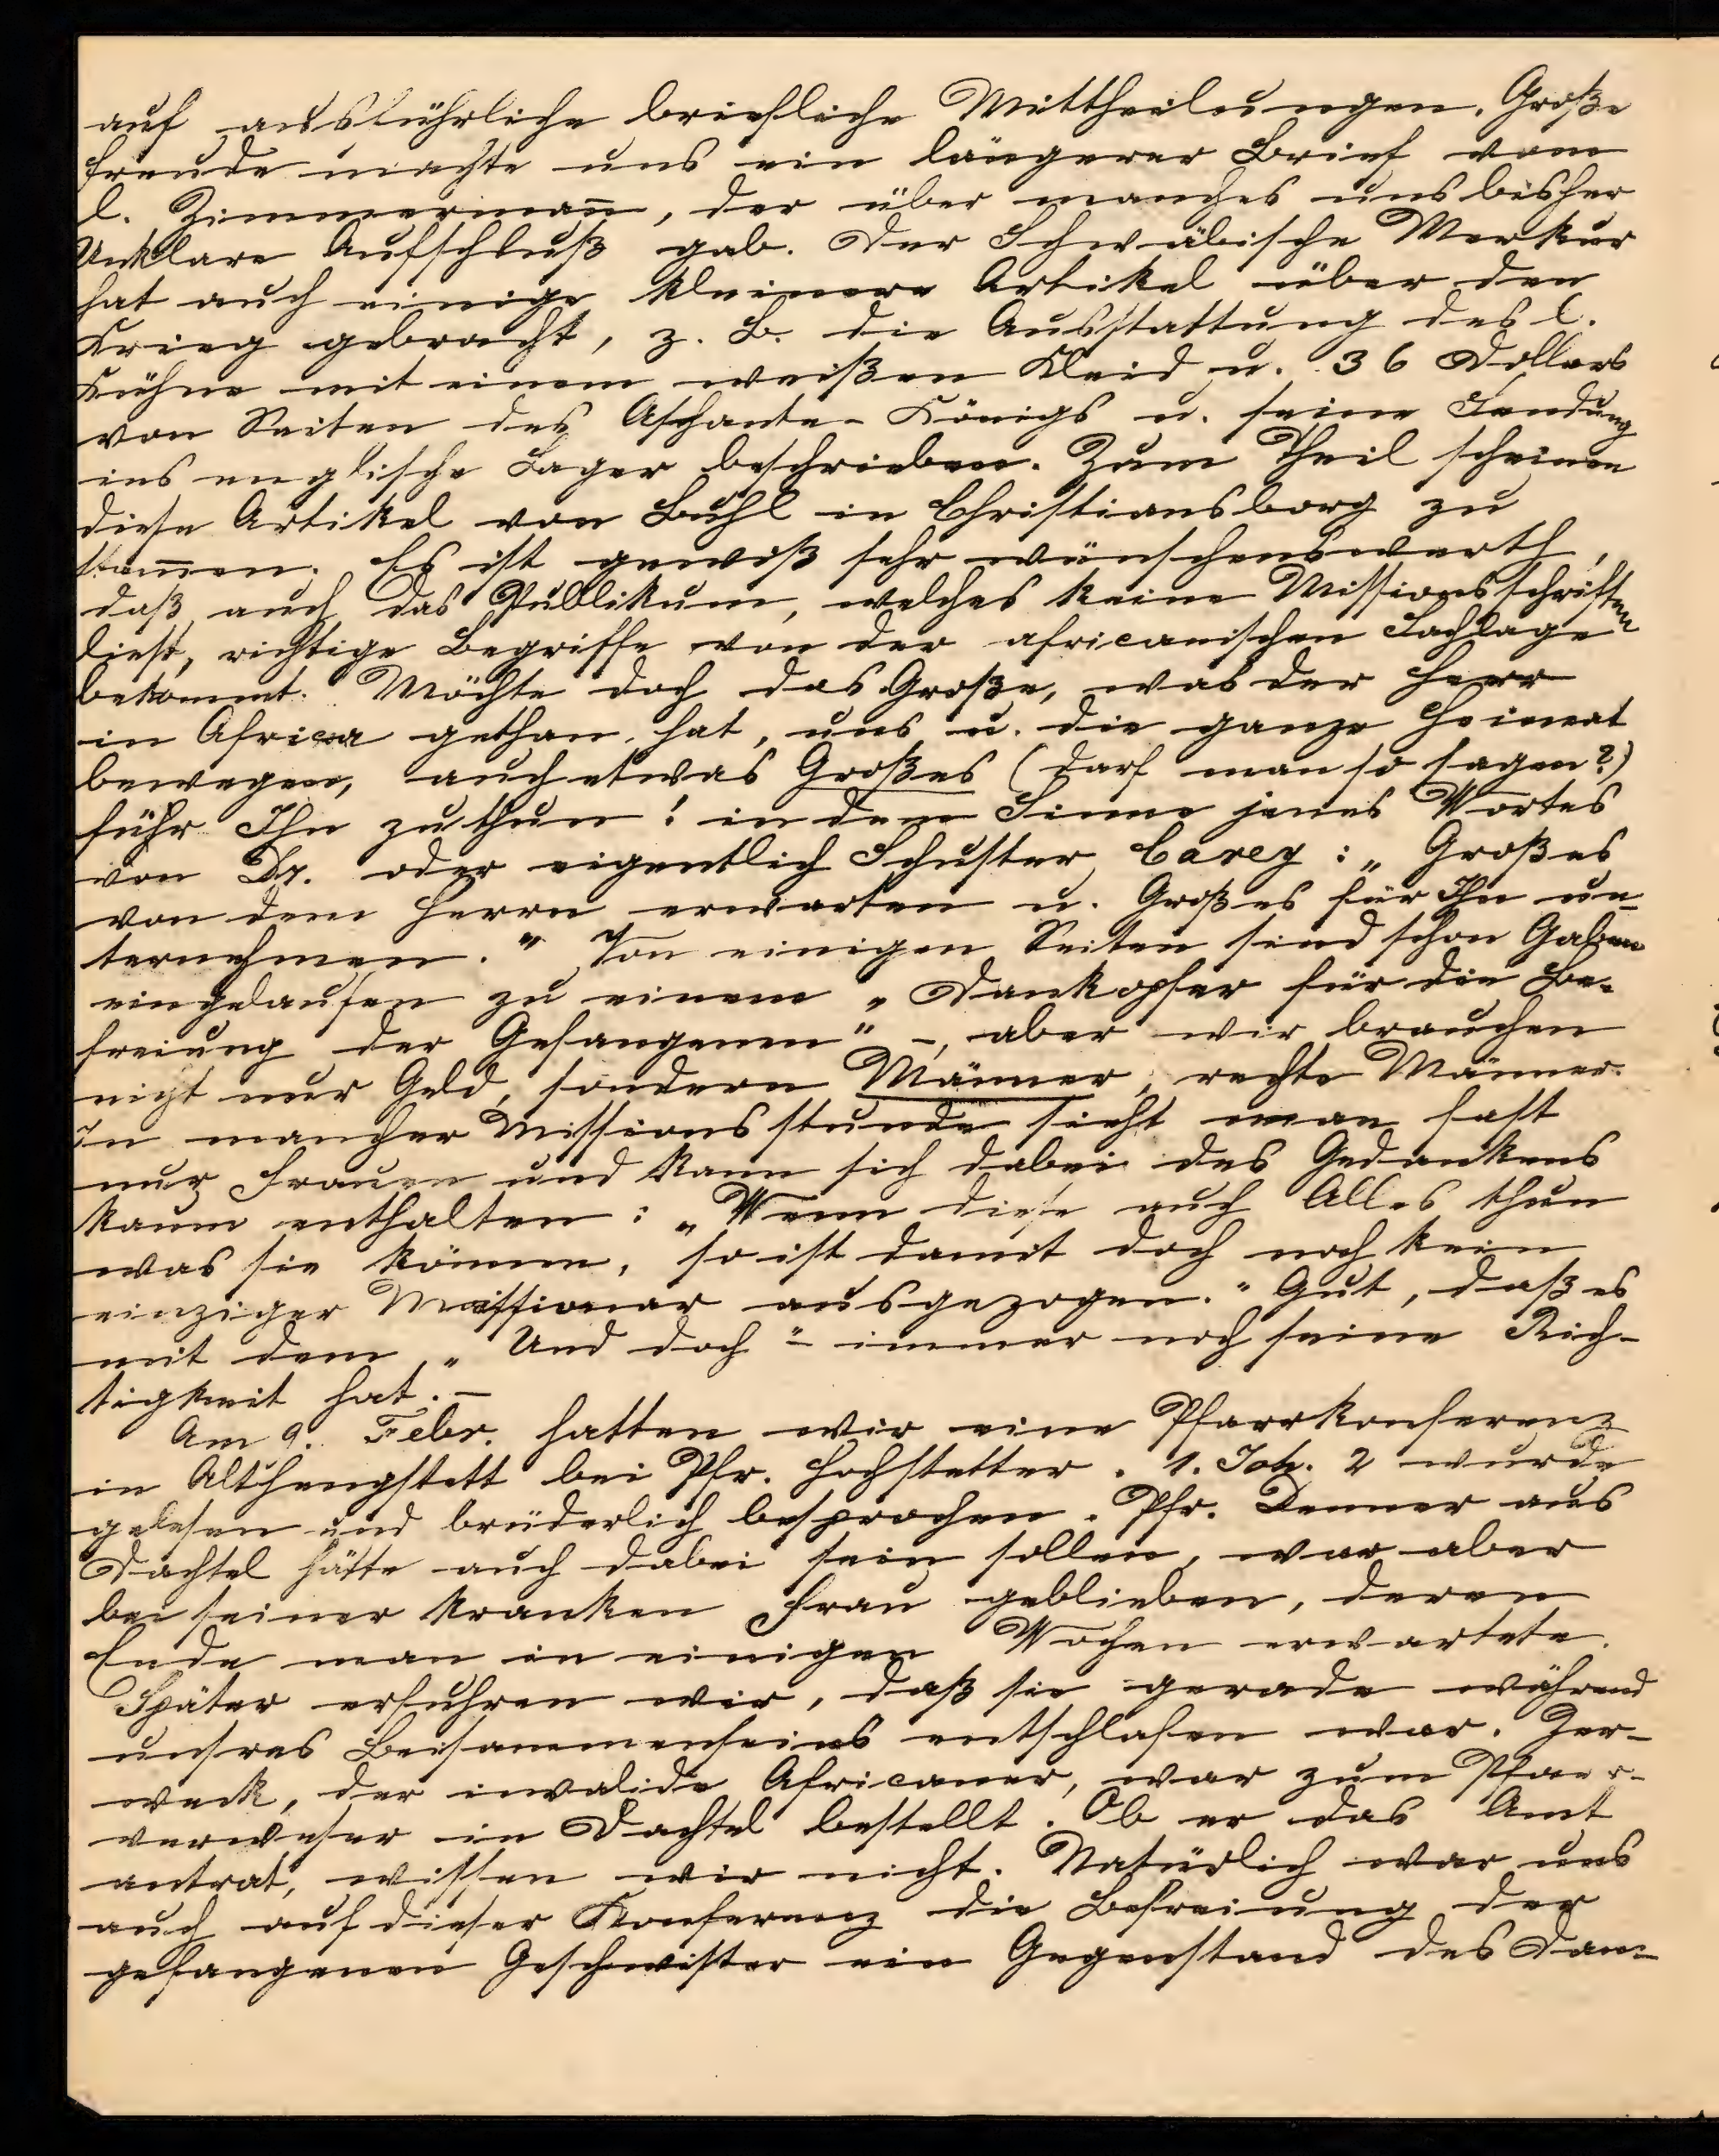 auf ausführliche briefliche Mittheilungen. Große
Freude machte uns ein längerer Brief vom
l. Zimmermañ, der über manches uns bisher
Unklare Aufschluß gab. Der Schwäbische Merkur
hat auch einige kleinere Artikel über den
Krieg gebracht, z. B. die Ausstattung des l.
Kühne mit einem weißen Kleid u. 36 Dollars
von Seiten des Aschante-Königs u. seine Sendung
ins englische Lager beschrieben. Zum Theil scheinen
diese Artikel von Buhl in Christiansborg zu
stam̄en. Es ist gewiß sehr wünschenswerth,
daß auch das Publikum, welches keine Missionsschriften
liest, richtige Begriffe von der africanischen Sachlage
bekommt. Möchte doch das Große, was der Herr
in Africa gethan hat, uns u. die ganze Heimat
bewegen, auch etwas Großes (darf man so sagen?)
führ Ihn zu thun! in dem Sinne jenes Wortes
von Dr. oder eigentlich Schuster Carey: „Großes
von dem Herrn erwarten u. Großes für Ihn un-
ternehmen." Von einigen Seiten sind schon Gaben
eingelaufen zu einem „Dankopfer für die Be-
freiung der Gefangenen" -, aber wir brauchen
nicht nur Geld, sondern Männer, rechte Männer.
In mancher Missionsstunde sieht man fast
nur Frauen und kann sich dabei des Gedankens
kaum enthalten: „Wenn diese auch Alles thun
was sie können, so ist damit doch noch kein
einziger Missionar ausgezogen." Gut, daß es
mit dem „Und doch" immer noch seine Rich-
tigkeit hat. -
Am 9. Febr. hatten wir eine Pfarrkonferenz
in Althengstett bei Pfr. Hochstetter. 1. Joh. 2 wurde
gelesen und brüderlich besprochen. Pfr. Denner aus
Dachtel hätte auch dabei sein sollen, war aber
bei seiner kranken Frau geblieben, deren
Ende man in einigen Wochen erwartete.
Später erfuhren wir, daß sie gerade während
unsres Beisammenseins entschlafen war. Zer-
weck, der invalide Africaner, war zum Pfarr-
verweser in Dachtel bestellt. Ob er das Amt
antrat, wissen wir nicht. Natürlich war uns
auch auf dieser Konferenz die Befreiung der
gefangenen Geschwister ein Gegenstand des Dan-